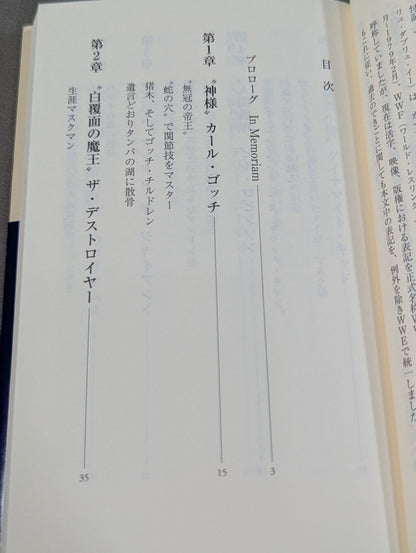 リュ・ダブリュ・
月〜1979年2月）、WWF（ワールド・レスリング・
呼称していましたが、現在は活字、映像、版権における表記を正式名称WW
もこれに従い、過去のできごとに関しても本文中の表記を、例外を除きWWEで統一しました
目次
プロローグ In Memoriam 3
第1章 〝神様〟カール・ゴッチ 15
〝無冠の帝王〟
〝蛇の穴〟で関節技をマスター
猪木、そしてゴッチ・チルドレン
遺言どおりタンパの湖に散骨
第2章 〝白覆面の魔王〟ザ・デストロイヤー 35
生涯マスクマン